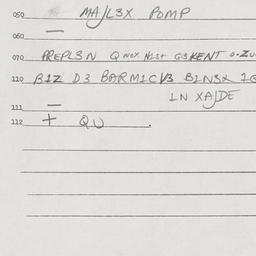 050 MA/L3X POMP
060 —
070 PREPL3N QNOX H1St G3KENT 0.ZU
110 B1Z D3 BARM1CV3 B1N3X 1G
1N XA/DE
111 —
112 + QU .